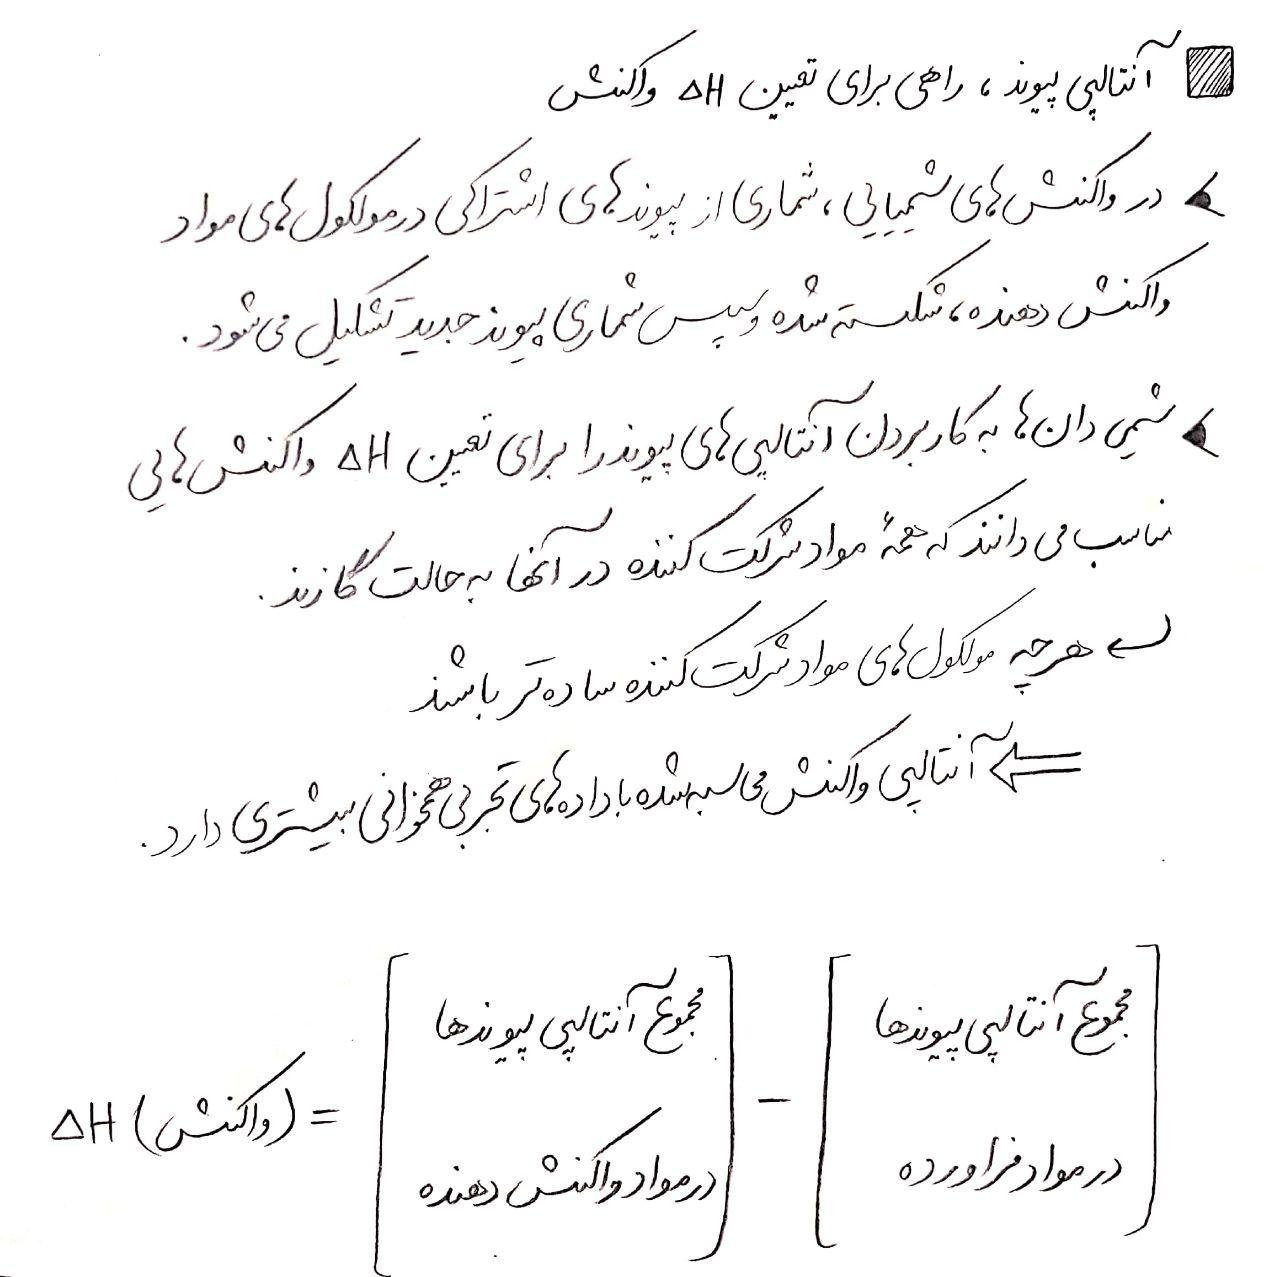 آنتالپی پیوند، راهی برای تعیین ΔH واکنش
در واکنش‌های شیمیایی، شماری از پیوندهای اشتراکی در مولکول‌های مواد
واکنش دهنده، شکسته شده و سپس شماری پیوند جدید تشکیل می‌شود.
شیمی دان‌ها به کار بردن آنتالپی‌های پیوند را برای تعیین ΔH واکنش‌هایی
مناسب می‌دانند که همهٔ مواد شرکت کننده در آنها به حالت گازند.
هرچه مولکول‌های مواد شرکت کننده ساده‌تر باشند
⇐ آنتالپی واکنش محاسبه شده با داده‌های تجربی همخوانی بیشتری دارد.
ΔH (واکنش) = [مجموع آنتالپی پیوندها در مواد واکنش دهنده] − [مجموع آنتالپی پیوندها در مواد فراورده]